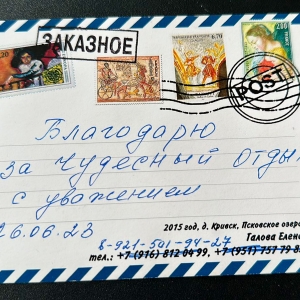 ЗАКАЗНОЕ
6,70
POST
Благодарю
за чудесный отды
с уважением
26.06.23
2015 год, д. Кривск, Псковское озеро
Галова Елен
8-921-501-94-27
тел.: +7 (916) 812 04 99, +7 (951) 757 79 8